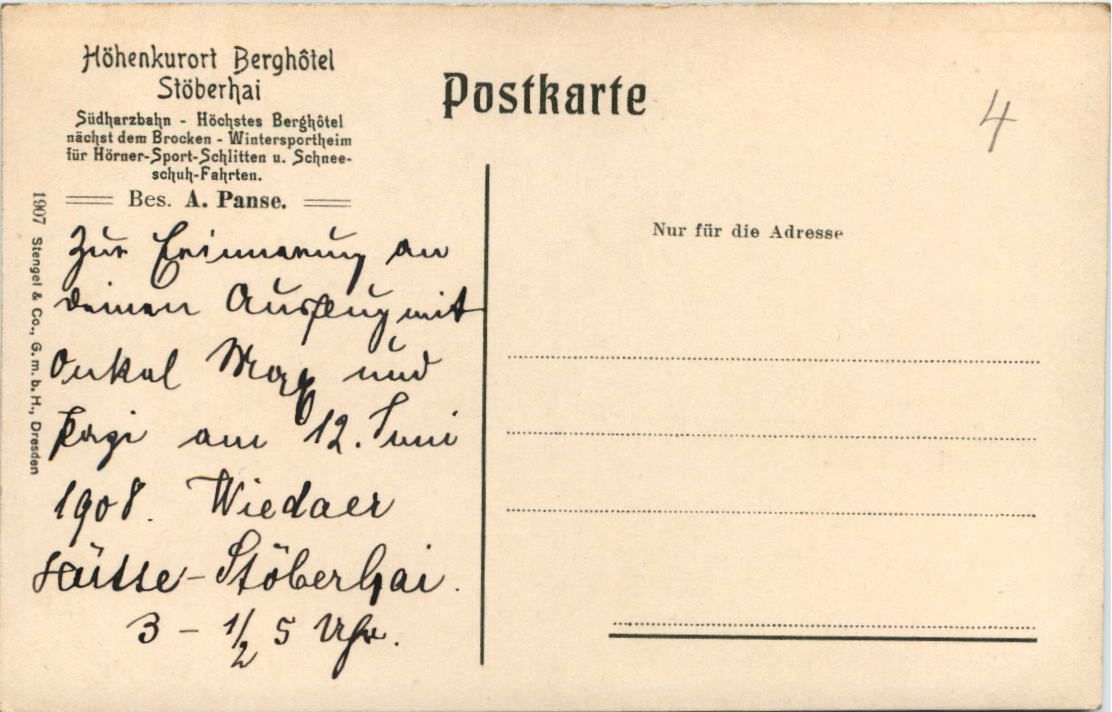 Höhenkurort Berghôtel
Stöberhai
Südharzbahn - Höchstes Berghôtel
nächst dem Brocken - Wintersportheim
für Hörner-Sport-Schlitten u. Schnee-
schuh-Fahrten.
Bes. A. Panse.
Zur Erinnerung an
deinen Ausflug mit
Onkel Max und
am 12. Juni
1908. Wiedaer
Hütte - Stöberhai.
3 - 1/2 5 Uhr.
1907 Stengel & Co., G. m. b. H., Dresden
Postkarte
4
Nur für die Adresse